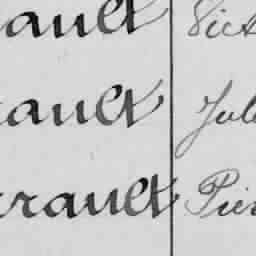 ault Vict
ault Jul
rrault Pier